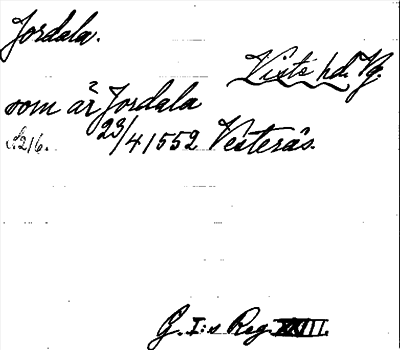 Jordala.
Viste hd. Vg.
som är Jordala
23/4 1552 Vesterås.
216.
G. I:s Reg.